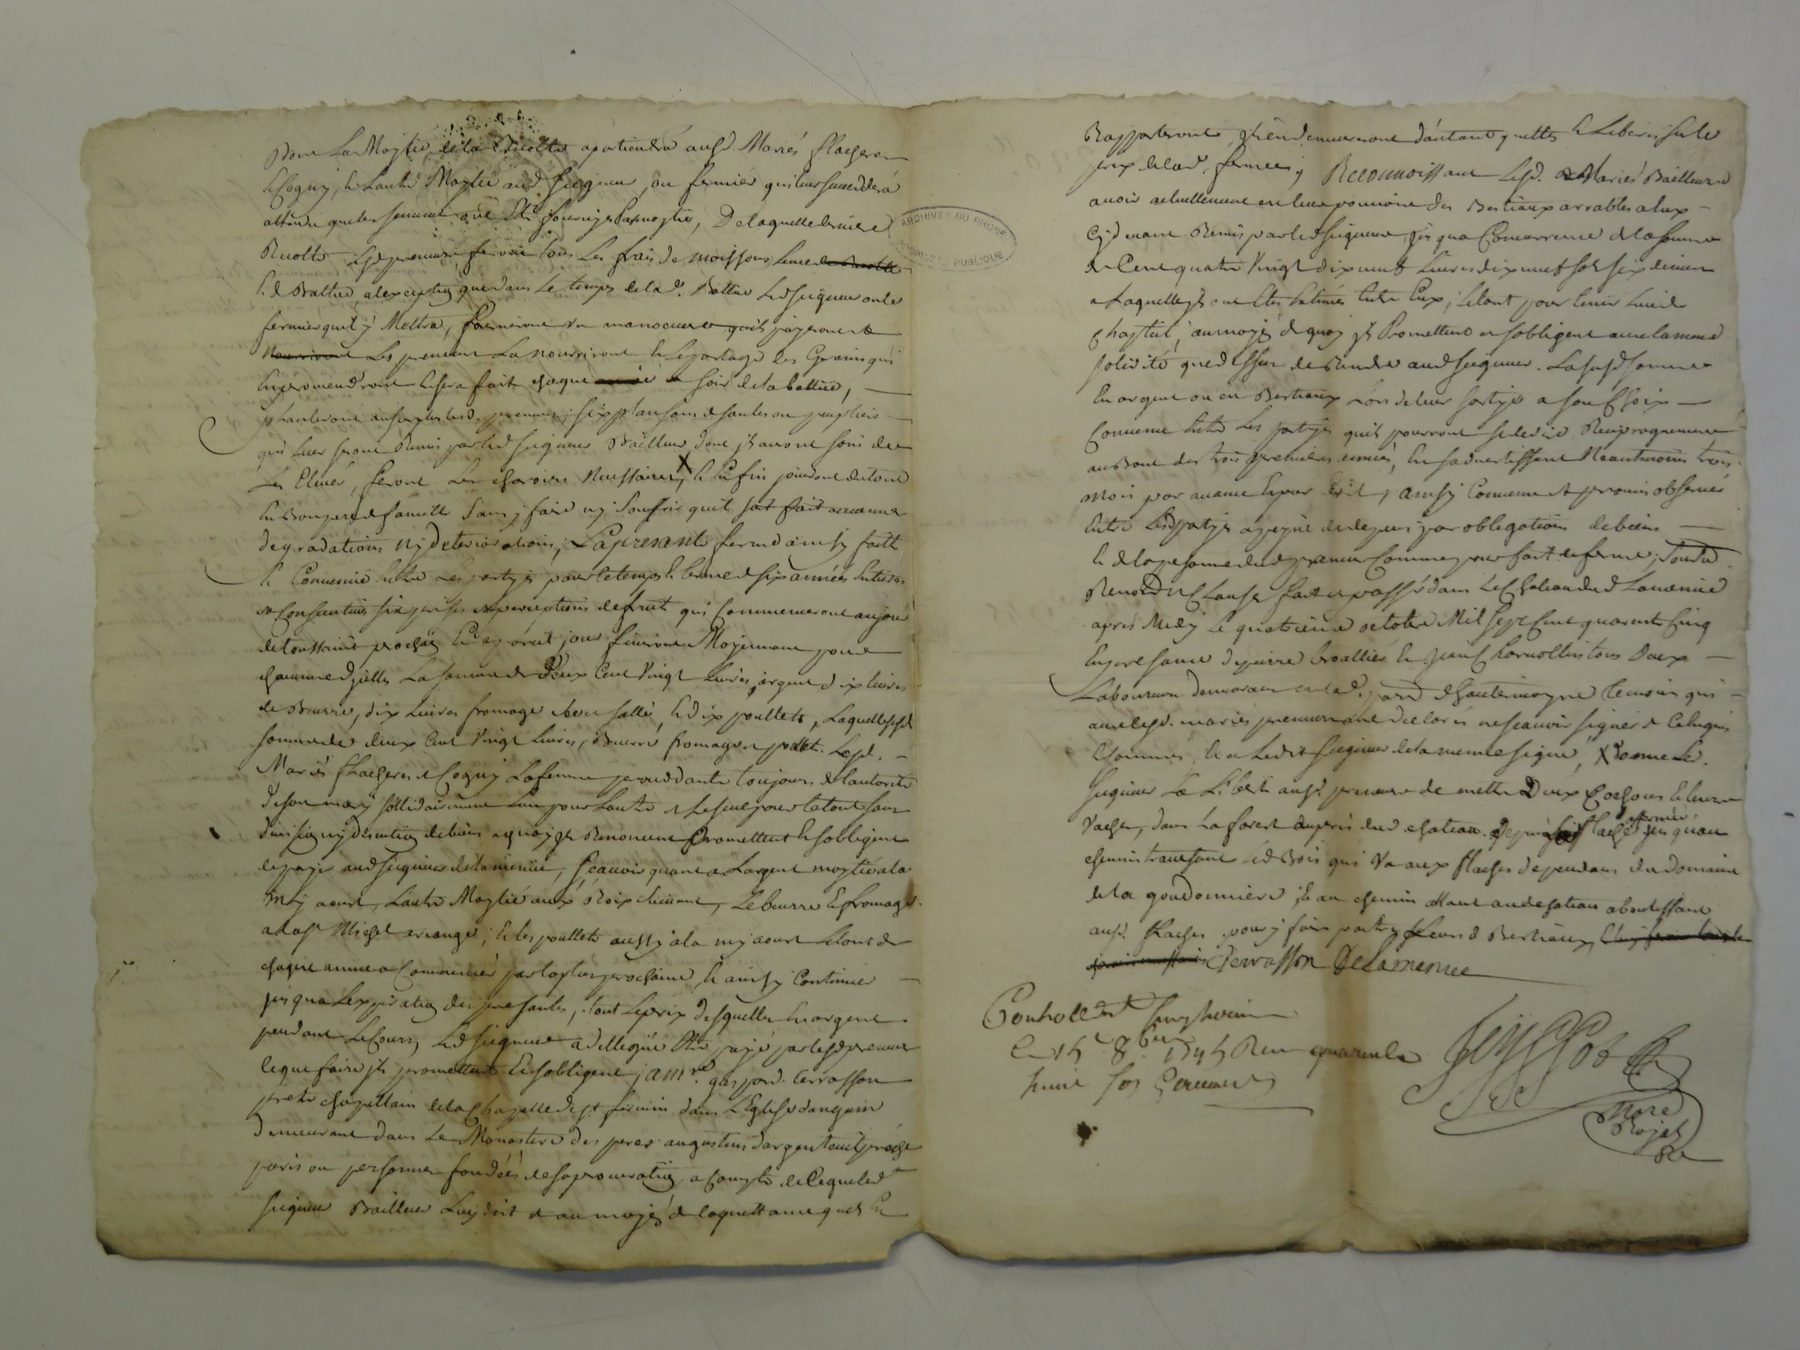 Dont La Moytié de la Recolte apartiendra ausd. Mariés flacheron
et Cogny, et Lautre Moytié aud. Seigneur ou fermier qui leur succedera
attendu que les semences ont Eté fournyes Par moytié, De laquelle derniere
Recolte Lesd. preneurs feront tous Les frais de moissons
& de Battue, a lexception que dans le temps de lad. Battue Led. Seigneur ou le
fermier quil y Mettra, fournirons un manoeuvre quils payeront et
Les preneurs La nourriront et Le partage des Grains qui
En proviendront Sera fait chaque soir de la battue,
planteront annuellement Lesd. preneurs six plansons de saules ou peupliers
qui Leur seront Remis par led. Seigneur Bailleur, dont ils auront soins de
Les Elever, feront Les charrois Necessaires, X Et Enfin jouiront du tout
En Bon pere de famille Sans y faire ny Souffrir quil soit fait aucunes
degradations ny deteriorations, La presente ferme ainsy faitte
Et Convenüe Entre Les partyes pour le temps et terme de six années Entieres
et Consecutives six prises et perceptions de fruits qui Commenceront au jour
de toussaint prochain Et a pareil jour finiront Moyennant pour
chacune d'jcelles La somme de Deux Cent Vingt Livres, argent, dix livres
de Beurre, dix Livres fromage bien sallé, Et dix poullets, Laquelle susd.
somme de deux Cent Vingt Livres, Beurre fromage et poulets. Lesd.
Mariés flacheron et Cogny Lafemme procedante toujours de Lautorité
de son mary sollidairement Lun pour Lautre et Le seul pour le tout sans
Division ny discution de biens a quoy ils Renoncent Promettent Et sobligent
de payer aud. Seigneur delamenüe, scavoir quant a Largent moytié a la
my aoust, Lautre Moytié aux Roix suivant, Le beurre Et fromage
a la St. Michel arcange; Et les poullets aussy a la my aoust Le tout de
chaque année a Commencer par la plus prochaine Et ainsy Continuer
jusqua Lexpiration des presentes, tout Le prix desquelles En argent
pendant Le Cours Led. Seigneur a dellegué Etre payé par lesd. preneurs
ce que faire ils promettent Et sobligent, a Mre. gaspard Terrasson
pretre chapellain de la Chapelle de St. fermin dans L'Eglise danguin
demeurant dans Le Monastere des peres augustins dargenteuil prés de
paris ou personnes fondées de sa procuration a Compte de Ce que led.
Seigneur Bailleur Luy doit et au moyen de laquittance quils En
Rapporteront, ils En demeureront dautant quittes Et Liberés sur le
prix de lad. ferme; Reconnoissant Lesd. Mariés Bailleurs
avoir actuellement en leur pouvoir des Bestiaux arrables a Eux
Cydevant Remis par led. Seigneur jusqua Concurrence de la somme
de Cent quatre Vingt dix neuf Livres dix neuf sols six deniers
a Laquelle ils ont Eté Estimés Entre Eux; Et dont pour tenir Lieu de
Cheptel, au moyen de quoy ils Promettent et sobligent avec la meme
solidité que dessus de Rendre aud. Seigneur. La susd. somme
En argent ou en Bestiaux Lors de leur sortye a son Choix
Convenu Entre Les partyes quils pourront se dedire Reciproquement
au Bout des trois premieres années, En sadvertissant Neantmoins trois
mois par avance Et par Ecrit, ainsy Convenu Et promis observer
Entre Lesd. partyes a peyne de depens par obligations de biens
Et de la personne desd. preneurs Comme pour fait de ferme; Soumis.
Renond. Clauses fait et passé dans Le Chateau dud. Lamenüe
apres Midy Le quatrieme octobre Mil Sept Cent quarante Cinq
En presence de pierre broallier Et Jean Charvollin tous Deux
Laboureurs demeurant en lad. parr. de hauterivoyre temoins qui
avec lesd. mariés preneurs ont declarés ne scavoir signer de Ce Enquis
Et sommés, Et a Ledit Seigneur delamenüe signé, X Donne Led.
Seigneur La Liberté ausd. preneurs de mettre Deux Cochons Et leurs
Vaches, dans La forest auprés dud. chateau depuis Le flaché fermier jusquau
chemin traversant Led. Bois qui Va aux flaches dependans du Domaine
de la goudonniere, Et au chemin allant au chateau aboutissant
ausd. flaches pour y faire paitre Leursd. Bestiaux,
Terrasson Delamenüe
Controllé à St. Simphorien
Le 15e. 8bre 1745 Reçu quarente
huit sos
Seyssot
Nore
Royal